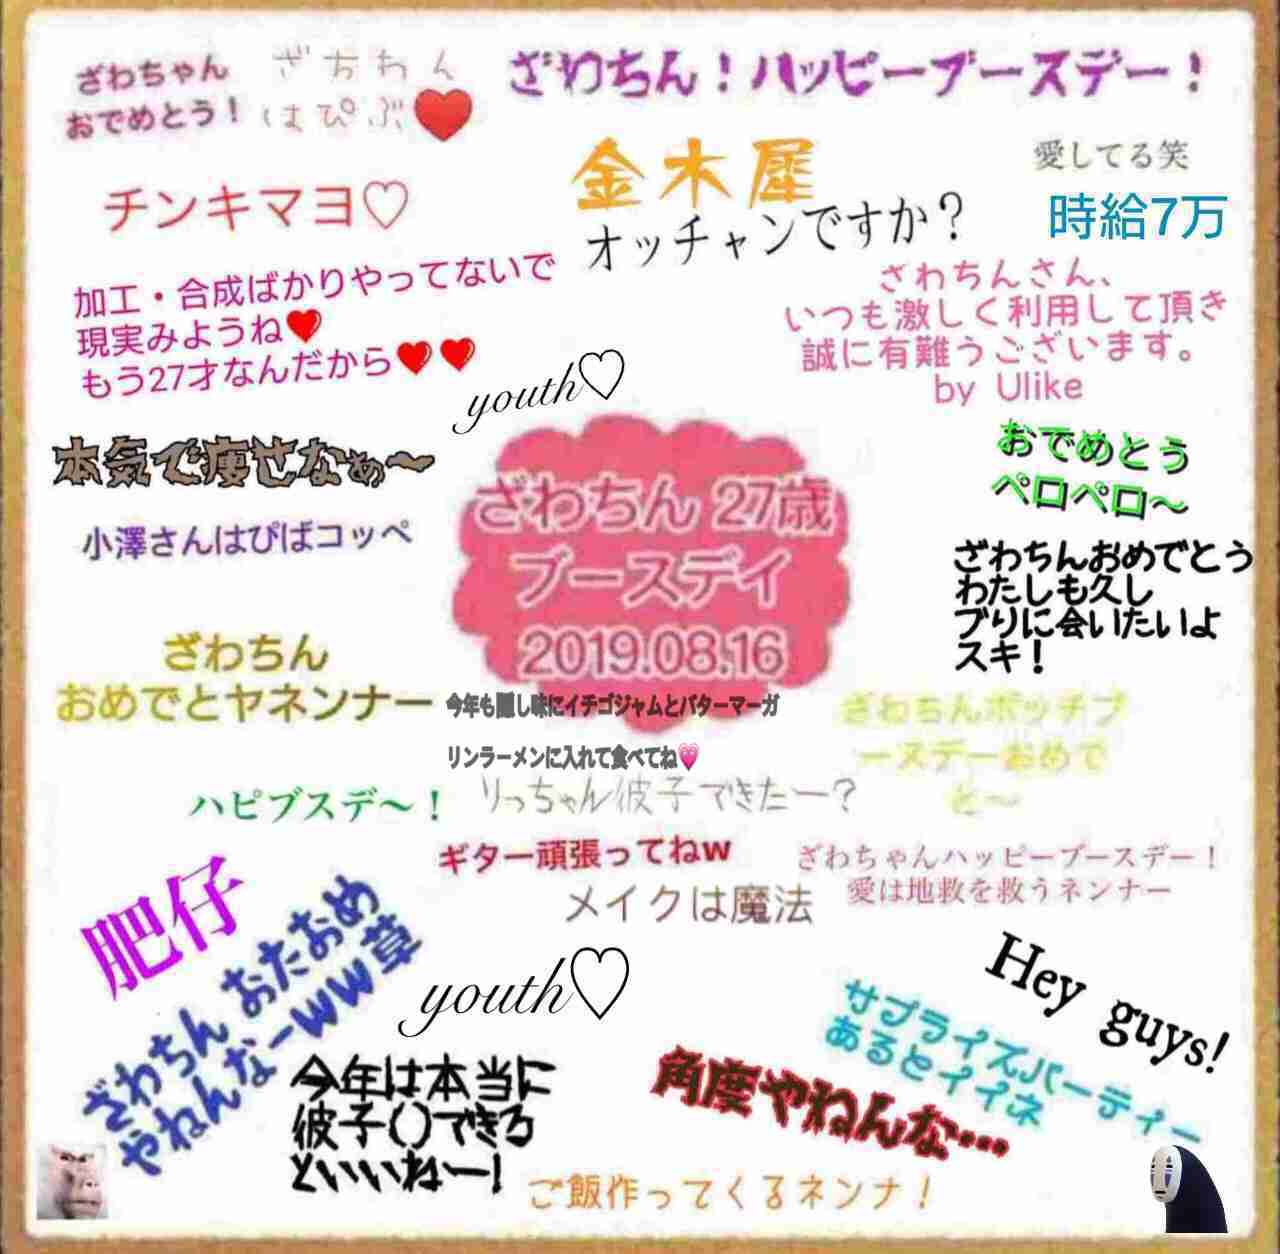 ざわちゃん
おでめとう！
ざちわん
はぴぶ❤
ざわちん！ハッピーブースデー！
金木犀
オッチャンですか？
愛してる笑
時給7万
チンキマヨ♡
加工・合成ばかりやってないで
現実みようね❤
もう27才なんだから❤❤
ざわちんさん、
いつも激しく利用して頂き
誠に有難うございます。
by Ulike
youth♡
本気で痩せなぁ〜
小澤さんはぴばコッペ
ざわちん 27歳
ブースデイ
2019.08.16
おでめとう
ペロペロ〜
ざわちんおめでとう
わたしも久し
ブりに会いたいよ
スキ！
ざわちん
おめでとヤネンナー
今年も隠し味にイチゴジャムとバターマーガ
リンラーメンに入れて食べてね💗
ざわちんボッチブ
ースデーおめで
と〜
ハピブスデ〜！
りっちゃん彼子できたー？
ギター頑張ってねw
メイクは魔法
ざわちゃんハッピーブースデー！
愛は地救を救うネンナー
肥仔
ざわちん おたおめ
やねんなーww草
youth♡
Hey guys!
サプライズパーティー
あるとイイネ
今年は本当に
彼子()できろ
といいねー！
角度やねんな…
ご飯作ってくるネンナ！